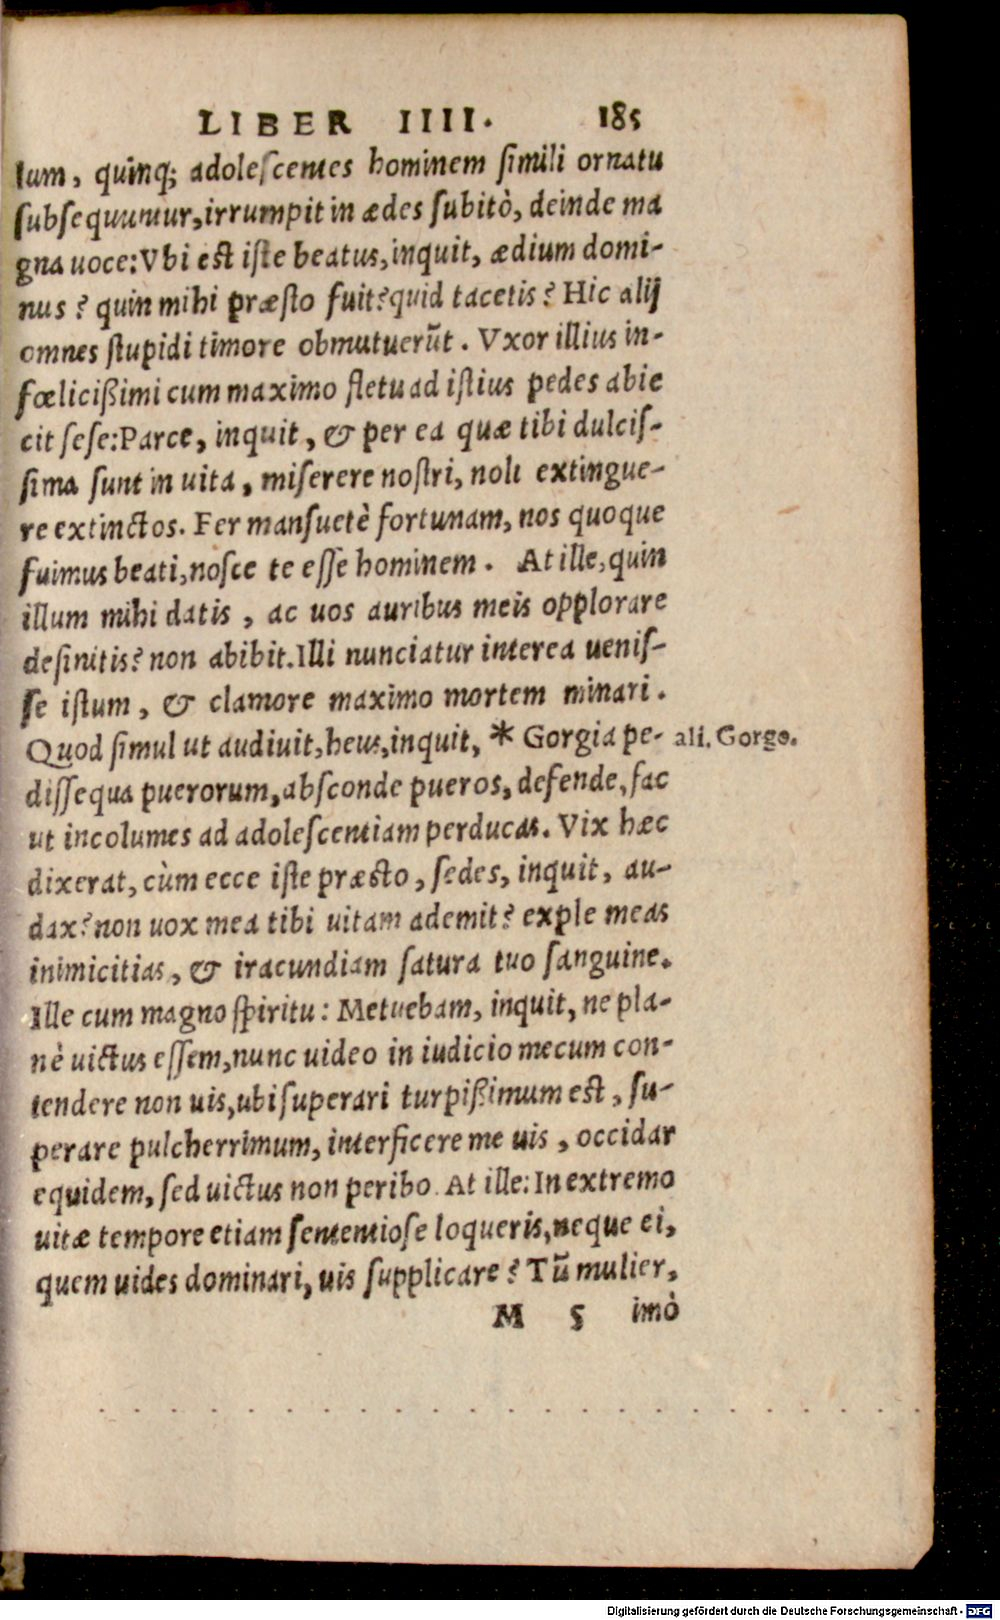 LIBER IIII. 185
lum, quinq; adolescentes hominem simili ornatu
subsequuntur, irrumpit in ædes subitò, deinde ma
gna uoce: Vbi est iste beatus, inquit, ædium domi-
nus? quin mihi præsto fuit? quid tacetis? Hic alij
omnes stupidi timore obmutuerūt. Vxor illius in-
fœlicißimi cum maximo fletu ad istius pedes abie
cit sese: Parce, inquit, & per ea quæ tibi dulcis-
sima sunt in uita, miserere nostri, noli extingue-
re extinctos. Fer mansuetè fortunam, nos quoque
fuimus beati, nosce te esse hominem. At ille, quin
illum mihi datis, ac uos auribus meis opplorare
desinitis? non abibit. Illi nunciatur interea uenis-
se istum, & clamore maximo mortem minari.
Quod simul ut audiuit, heus, inquit, * Gorgia pe- ali. Gorge.
dissequa puerorum, absconde pueros, defende, fac
ut incolumes ad adolescentiam perducas. Vix hæc
dixerat, cùm ecce iste præsto, sedes, inquit, au-
dax? non uox mea tibi uitam ademit? exple meas
inimicitias, & iracundiam satura tuo sanguine.
Ille cum magno spiritu: Metuebam, inquit, ne pla-
nè uictus essem, nunc uideo in iudicio mecum con-
tendere non uis, ubi superari turpißimum est, su-
perare pulcherrimum, interficere me uis, occidar
equidem, sed uictus non peribo. At ille: In extremo
uitæ tempore etiam sententiose loqueris, neque ei,
quem uides dominari, uis supplicare? Tū mulier,
M 5 imò
Digitalisierung gefördert durch die Deutsche Forschungsgemeinschaft - DFG